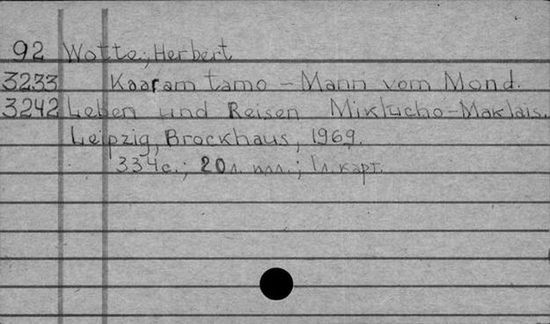 92 Wotte, Herbert
3233 Kaaram tamo - Mann vom Mond.
3242 Leben und Reisen Miklucho-Maklais.
Leipzig, Brockhaus, 1969.
334с.; 20л. илл.; 1л. карт.